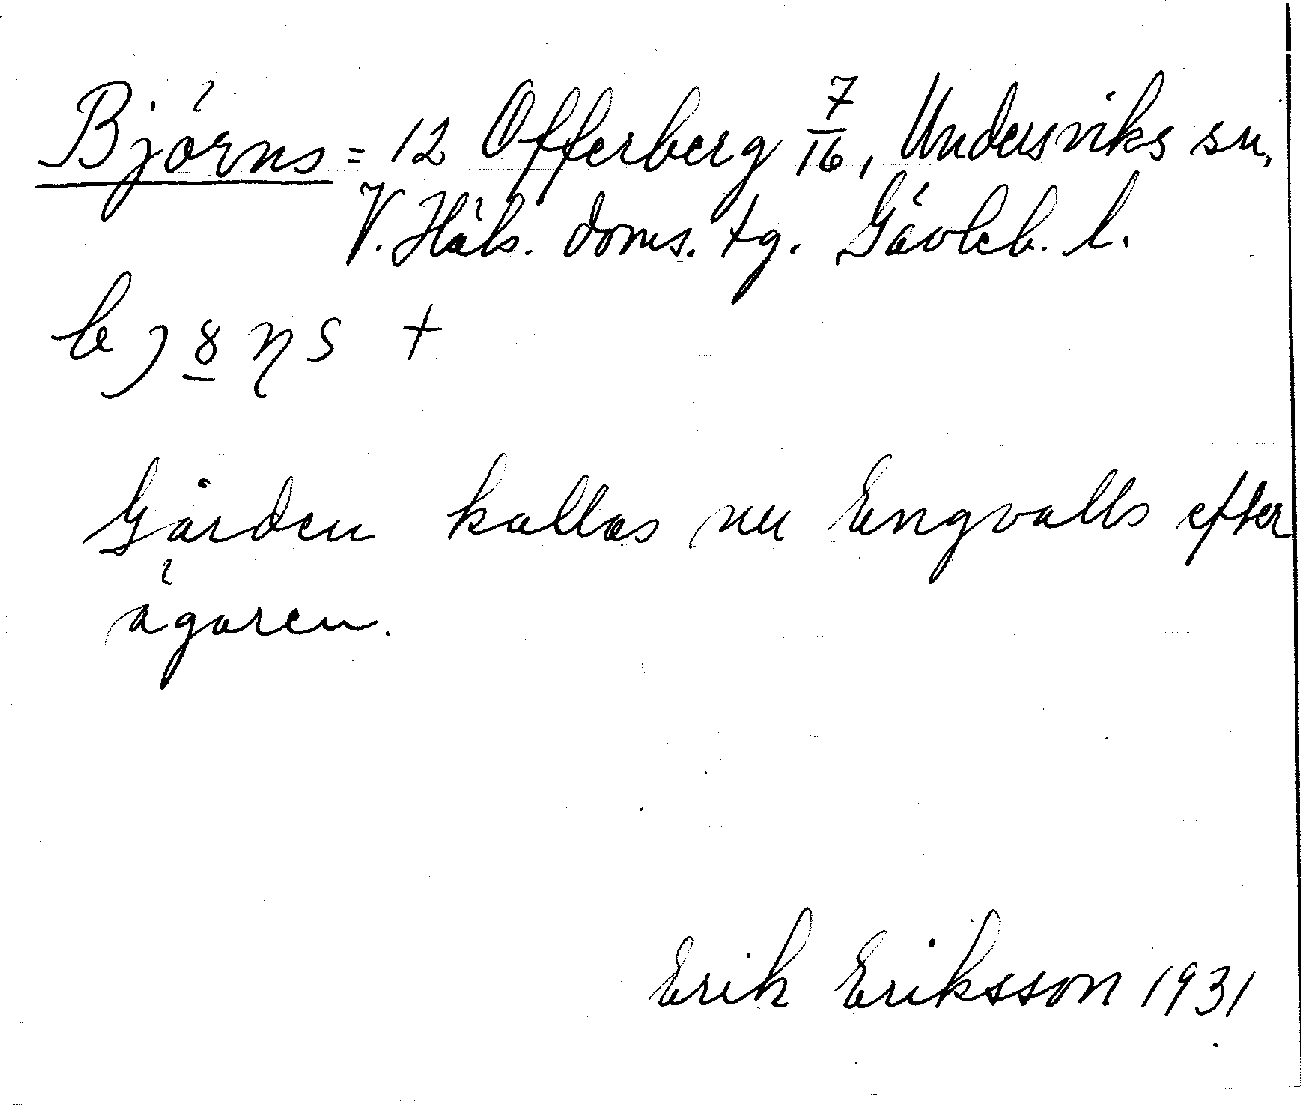 Björns = 12 Offerberg 7/16, Undersviks sn,
V. Häls. doms. tg. Gävleb. l.
bj8ηs +
Gården kallas nu Engvalls efter
ägaren.
Erik Eriksson 1931